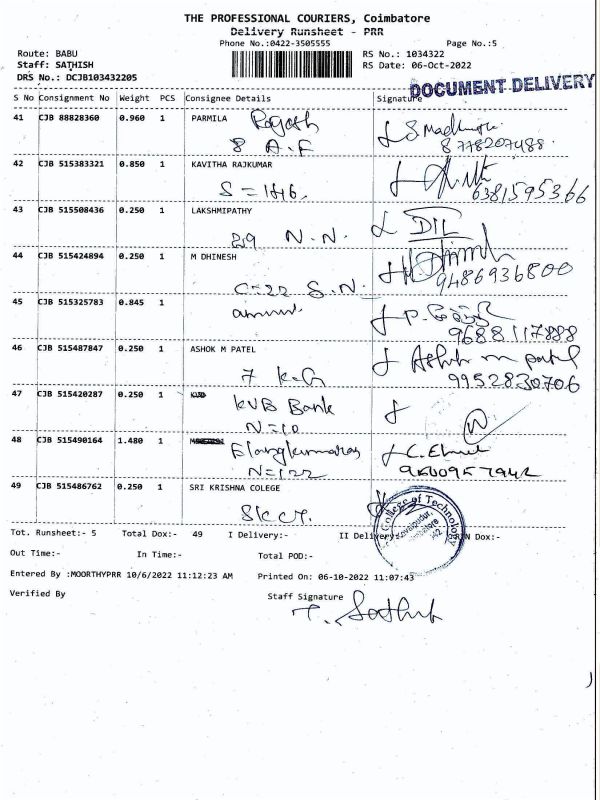 THE PROFESSIONAL COURIERS, Coimbatore
Delivery Runsheet - PRR
Phone No.:0422-3505555 Page No.:5
Route: BABU RS No.: 1034322
Staff: SATHISH RS Date: 06-Oct-2022
DRS No.: DCJB103432205
DOCUMENT DELIVERY
S No Consignment No Weight PCS Consignee Details Signature
41 CJB 88828360 0.960 1 PARMILA
8 A.F
S Madhu
8778207488
42 CJB 515383321 0.850 1 KAVITHA RAJKUMAR
6381595366
43 CJB 515508436 0.250 1 LAKSHMIPATHY
29 N.N. DIL
44 CJB 515424894 0.250 1 M DHINESH
C=22 S.N.
9486936800
45 CJB 515325783 0.845 1
9688117888
46 CJB 515487847 0.250 1 ASHOK M PATEL
7 K.G Ashok m patel
9952830706
47 CJB 515420287 0.250 1
KVB Bank
N=10
48 CJB 515490164 1.480 1
Elangkumaran
N=122
9600957942
49 CJB 515486762 0.250 1 SRI KRISHNA COLEGE
SKCT.
College of Technology
Kovaipudur,
Coimbatore
642
Tot. Runsheet:- 5 Total Dox:- 49 I Delivery:- II Delivery:- Dox:-
Out Time:- In Time:- Total POD:-
Entered By :MOORTHYPRR 10/6/2022 11:12:23 AM Printed On: 06-10-2022 11:07:43
Verified By Staff Signature
T. Sathish